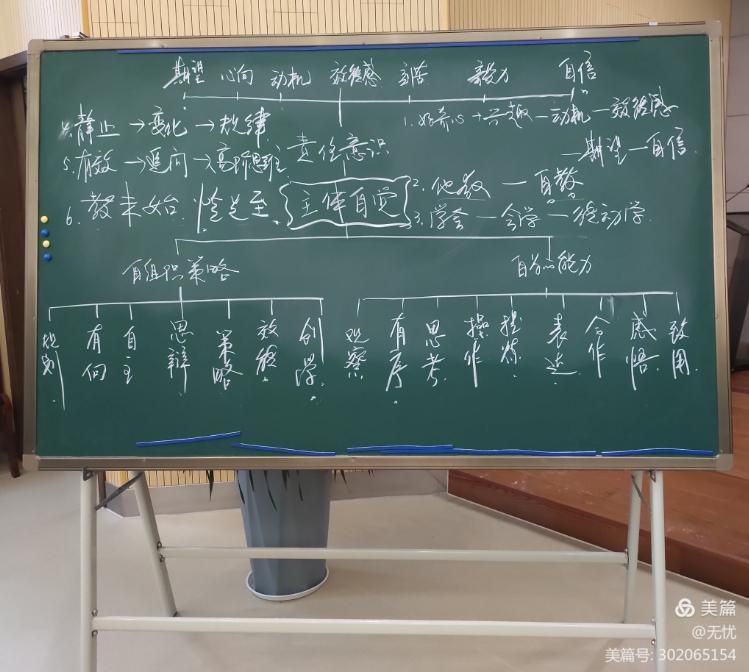 期望 心向 动机 效能感 刻苦 毅力 自信
1.好奇心→兴趣—动机—效能感
—期望—自信
4.静止→变化→规律
5.有效→逆向→高阶思维
责任意识
6.教未始
主体自觉
2.他教—自教
3.学会—会学—能动学
自组织策略
自为能力
规划 有向 自主 思辩 策略 效能 创学
观察 有序 思考 操作 提炼 表达 合作 感悟 致用
美篇
@无忧
美篇号: 302065154